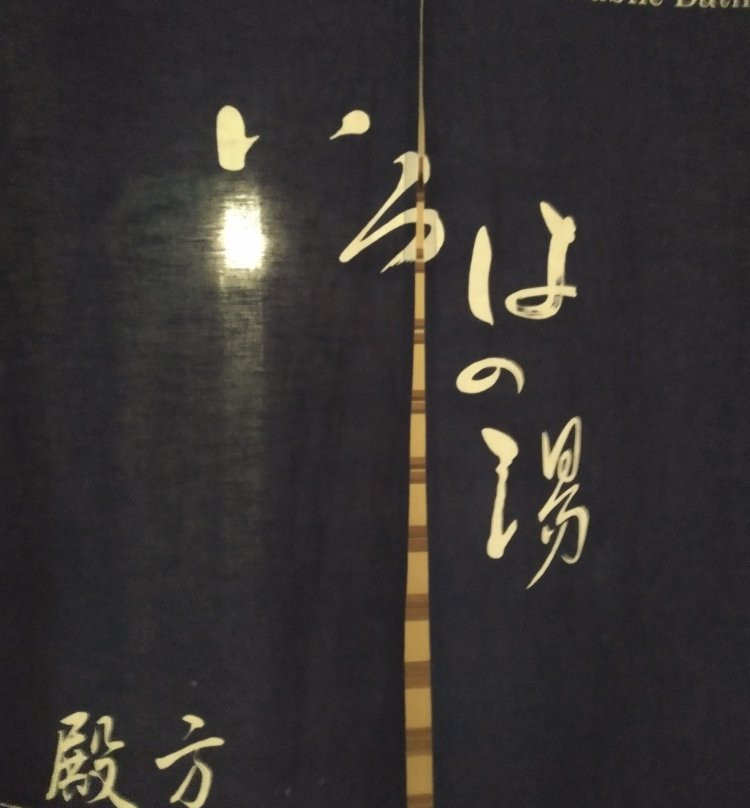 Public Bath
いろはの湯
殿方